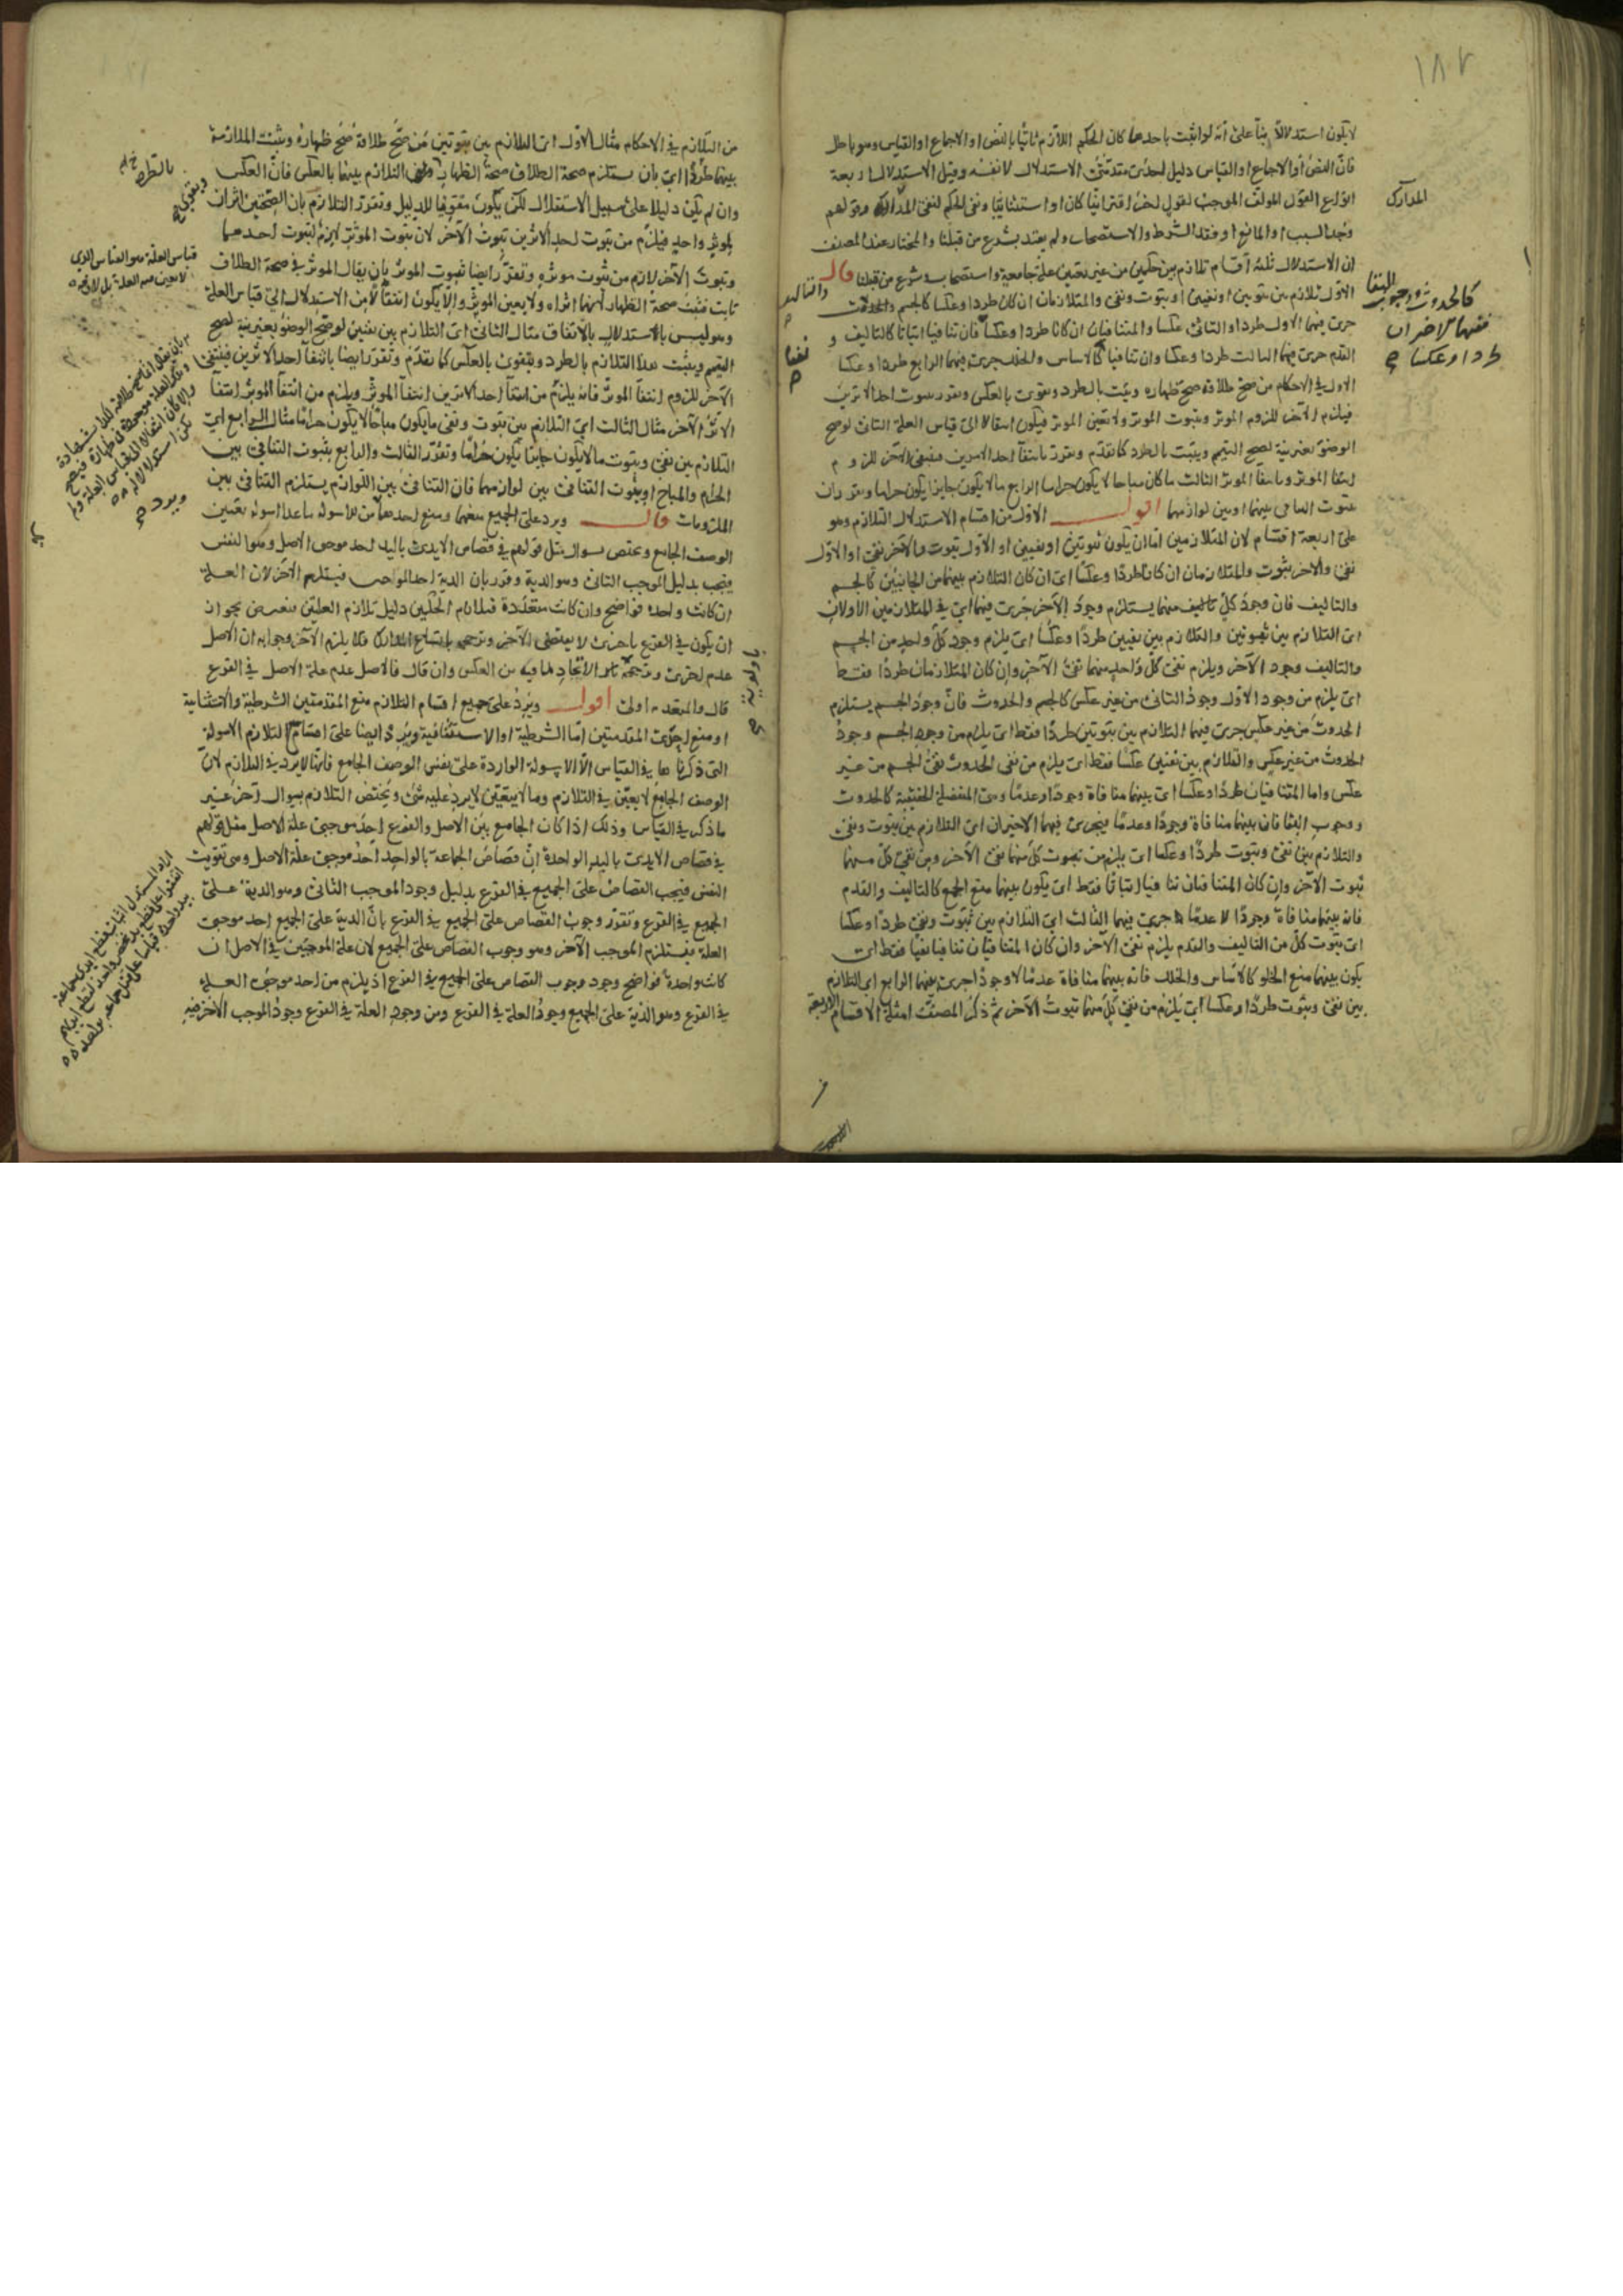 ١٨٢
لا يكون استدلالاً بناً على انه لو اثبت باحدها كان الحكم اللازم ثابتا بالنص او الاجماع او القياس وهو باطل
فان النص او الاجماع او القياس دليل لحدى مقدمتى الاستدلال لا نفسه وقيل الاستدلال اربعة
انواع القول المولف الموجب لقول اخر اقترانيا كان او استثنائيا ونفى الحكم لنفى المدارك وقولهم
وجد السبب او المانع او فقد الشرط والاستصحاب ولم يعتد بشرع من قبلنا والمختار عند المصنف
ان الاستدلال ثلثة اقسام تلازم بين حكمين من غير تعيين علة جامعة واستصحاب وشرع من قبلنا قال
الاول تلازم بين ثبوتين او نفيين او ثبوت ونفى والمتلازمان ان كان طردا وعكسا كالجسم والتاليف
جرى فيهما الاول طردا والثانى عكسا والمتنافيان ان كانا طردا وعكسا فان تنافيا اثباتا كالتاليف و
القدم جرى فيهما الثالث طردا وعكسا وان تنافيا كالاساس والخلل جرى فيهما الرابع طردا وعكسا
الاول فى الاحكام من صح طلاقه صح ظهاره ويثبت بالطرد ويقوى بالعكس ويقرر بثبوت احد الاثرين
فيلزم الآخر للزوم الموثر وبثبوت الموثر ولا تعين الموثر فيكون انتقالا الى قياس العلة الثانى لو صح
الوضوء بغير نية لصح التيمم ويثبت بالطرد كما تقدم ويقرر بانتفاً احد الاثرين فينتفى الآخر للزوم
انتفاً الموثر وبانتفاً الموثر الثالث ما كان مباحا لا يكون حراما الرابع ما لا يكون جايزا يكون حراما ويقرران
بثبوت التنافى بينهما او بين لوازمهما اقول الاول من اقسام الاستدلال التلازم وهو
على اربعة اقسام لان المتلازمين اما ان يكون ثبوتين او نفيين او الاول ثبوت والآخر نفى او الاول
نفى والاخر ثبوت والمتلازمان ان كانا طردًا وعكسًا اى ان كان التلازم بينهما من الجانبين كالجسم
والتاليف فان وجود كل تاليف منهما يستلزم وجود الآخر جرى فيهما اى فى المتلازمين الاولان
اى التلازم بين ثبوتين والتلازم بين نفيين طردًا وعكسًا اى يلزم وجود كل واحد من الجسم
والتاليف وجود الآخر ويلزم نفى كل واحد منهما نفى الآخر وان كان المتلازمان طردًا فقط
اى يلزم من وجود الاول وجود الثانى من غير عكس كالجسم والحدوث فان وجود الجسم يستلزم
الحدوث من غير عكس جرى فيهما التلازم بين ثبوتين طردًا فقط اى يلزم من وجود الجسم وجود
الحدوث من غير عكس والتلازم بين نفيين عكسًا فقط اى يلزم من نفى الحدوث نفى الجسم من غير
عكس واما المتنافيان طردًا وعكسًا اى بينهما منافاة وجودًا وعدمًا وهى المنفصلة الحقيقية كالحدوث
ووجوب البقا فان بينهما منافاة وجودًا وعدمًا فيجرى فيهما الاخيران اى التلازم بين ثبوت ونفى
والتلازم بين نفى وثبوت طردًا وعكسا اى يلزم من ثبوت كل منهما نفى الآخر ومن نفى كل منهما
ثبوت الآخر وان كان المتنافيان تنافيا اثباتًا فقط اى يكون بينهما منع الجمع كالتاليف والقدم
فان بينهما منافاة وجودًا لا عدمًا جرى فيهما الثالث اى التلازم بين ثبوت ونفى طردًا وعكسا
اى ثبوت كل من التاليف والقدم يلزم نفى الآخر وان كان المتنافيان تنافيا نفيا فقط اى
يكون بينهما منع الخلو كالاساس والخلل فان بينهما منافاة عدمًا لا وجودًا جرى فيهما الرابع اى التلازم
بين نفى وثبوت طردًا وعكسا اى يلزم من نفى كل منهما ثبوت الآخر ثم ذكر المصنف امثلة الاقسام الاربعة
المدارك
كالحدوث ووجوب البقا
ففيهما الاخران
طردا وعكسا صح
نفيا
صح
من التلازم فى الاحكام مثال الاول اى التلازم بين ثبوتين من صح طلاقه صح ظهاره ويثبت الملازمة
بينهما طردًا اى بان يستلزم صحة الطلاق صحة الظهار التلازم بينهما بالعكس فان العكس
وان لم يكن دليلا على سبيل الاستقلال لكن يكون مقويا للدليل وتقرر التلازم بان الصحتين اثران
لموثر واحد فيلزم من ثبوت احد الاثرين ثبوت الآخر لان ثبوت الموثر لازم لثبوت احدهما
وثبوت الآخر لازم من ثبوت موثره وتقرر ايضا ثبوت الموثر بان يقال الموثر فى صحة الطلاق
ثابت فثبت صحة الظهار لانهما اثراه ولا يعين الموثر والا يكون انتقالا من الاستدلال الى قياس العلة
وهو ليس بالاستدلال بالاتفاق مثال الثانى اى التلازم بين نفيين لو صح الوضوء بغير نية لصح
التيمم ويثبت هذا التلازم بالطرد ويقوى بالعكس كما تقدم وتقرر ايضا بانتفاً احد الاثرين فينتفى
الآخر للزوم انتفاً الموثر فانه يلزم من انتفاً احد الاثرين انتفاً الموثر ويلزم من انتفاً الموثر انتفاً
الاثر الآخر مثال الثالث اى التلازم بين ثبوت ونفى ما يكون مباحا لا يكون حراما مثال الرابع اى
التلازم بين نفى وثبوت ما لا يكون جايزا يكون حرامًا وتقرر الثالث والرابع بثبوت التنافى بين
الحرام والمباح او بثبوت التنافى بين لوازمهما فان التنافى بين اللوازم يستلزم التنافى بين
الملزومات قال ويرد على الجميع منعهما ومنع احدهما من الاسولة ما عدا اسولة تعيين
الوصف الجامع ويختص بسوال مثل قولهم فى قصاص الايدى باليد احد موجبى الاصل وهو النفس
فيجب بدليل الموجب الثانى وهو الدية وقرر بان الدية احد الموجبين فيستلزم الآخر لان العلة
ان كانت واحدة فواضح وان كانت متعددة فتلازم الحكمين دليل تلازم العلتين فيعترض بجواز
ان يكون فى الفرع باخرى لا يقتضى الآخر ويرجحه باتساع المدارك فلا يلزم الآخر وجوابه ان الاصل
عدم اخرى ويرجحه بان الاتحاد لما فيه من العكس وان قال فالاصل عدم علة الاصل فى الفرع
قال والمتعدية اولى اقول ويرد على جميع اقسام التلازم منع المقدمتين الشرطية والاستثنائية
او منع احدى المقدمتين اما الشرطية او الاستثنائية ويرد ايضا على اقسام التلازم الاسولة
التى ذكرناها فى القياس الا الاسولة الواردة على نفس الوصف الجامع فانها لا يرد فى التلازم لان
الوصف الجامع لا يعين فى التلازم وما لا يتعين لا يرد عليه شى ويختص التلازم بسوال آخر غير
ما ذكر فى القياس وذلك اذا كان الجامع بين الاصل والفرع احد موجبى علة الاصل مثل قولهم
فى قصاص الايدى باليد الواحدة ان قصاص الجماعة بالواحد احد موجبى علة الاصل وهى تفويت
النفس فيجب القصاص على الجميع فى الفرع بدليل وجود الموجب الثانى وهو الدية على
الجميع فى الفرع وتقرر وجوب القصاص على الجميع فى الفرع بان الدية على الجميع احد موجبى
العلة فيستلزم الموجب الآخر وهو وجوب القصاص على الجميع لان علة الموجبين فى الاصل ان
كانت واحدة فواضح وجود وجوب القصاص على الجميع فى الفرع اذ يلزم من احد موجبى العلة
فى الفرع وهو الدية على الجميع وجود العلة فى الفرع ومن وجود العلة فى الفرع وجود الموجب الاخر فيه
بالطرد
ويقوى صح
قياس العلة هو القياس الذى
ويرد صح
باولوية
صح